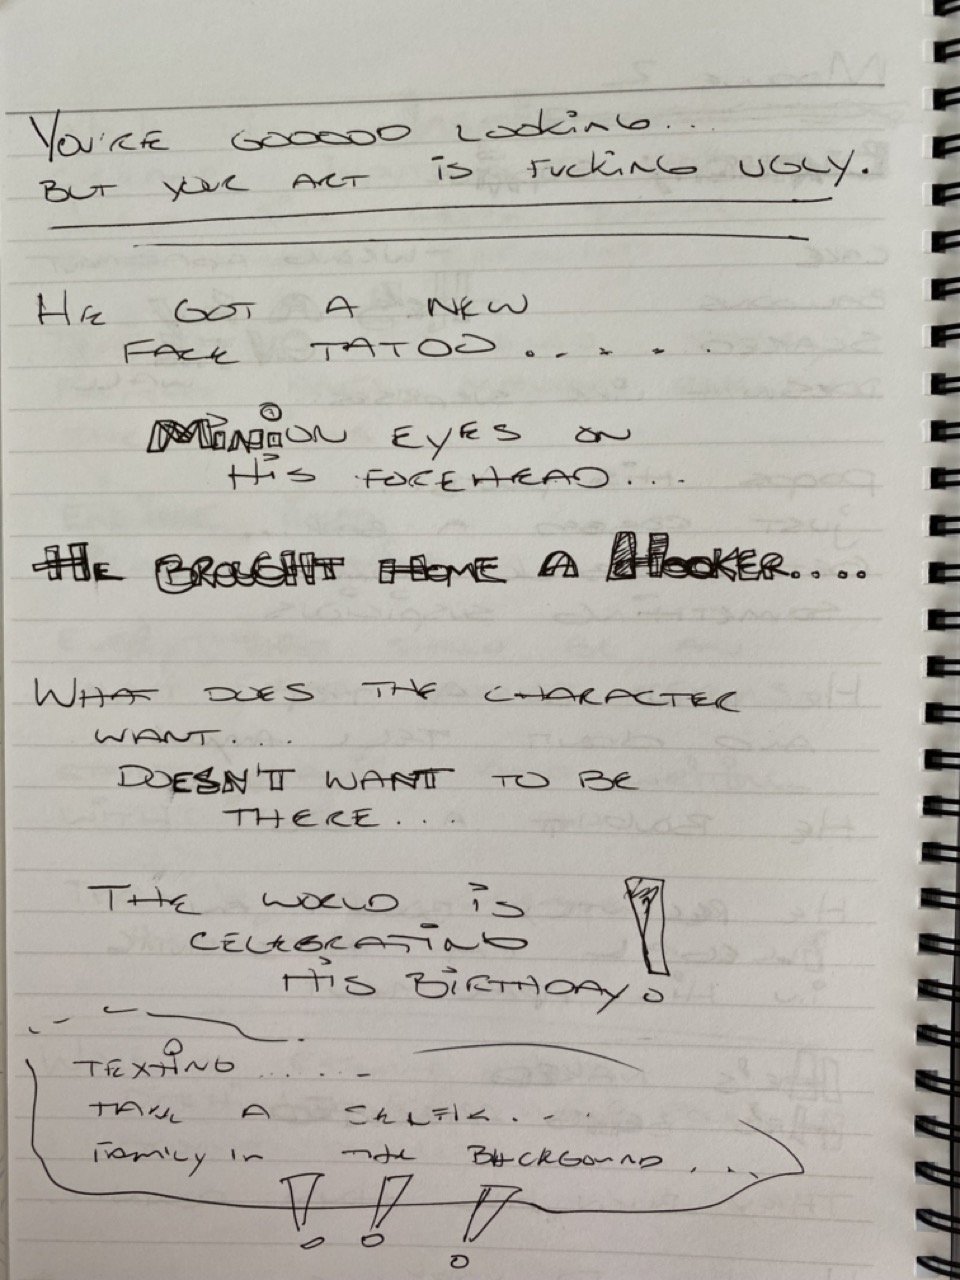 YOU'RE GOOOOD LOOKING...
BUT YOUR ART IS FUCKING UGLY.
HE GOT A NEW
FACE TATOO . . . . .
MINION EYES ON
HIS FOREHEAD...
HE BROUGHT HOME A HOOKER....
WHAT DOES THE CHARACTER
WANT...
DOESN'T WANT TO BE
THERE...
THE WORLD IS
CELEBRATING
HIS BIRTHDAY!
TEXTING .....
TAKE A SELFIE...
FAMILY IN THE BACKGROUND...
! ! !